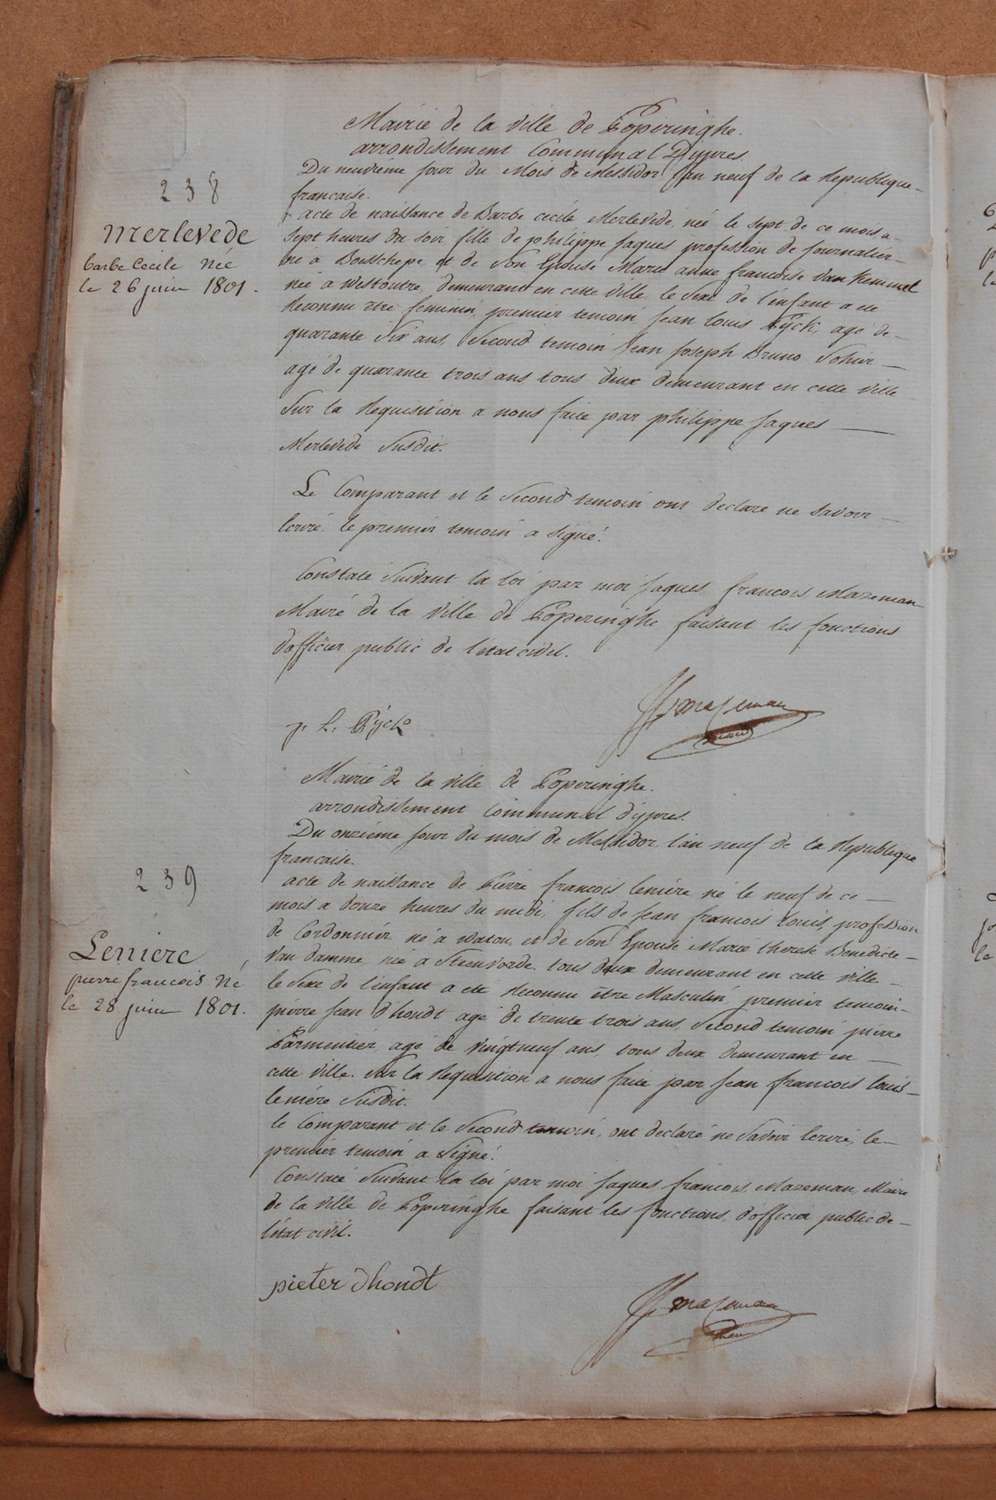 Mairie de la ville de Poperinghe.
arrondissement Communal Dypres
238
Merlevede
barbe Cecile Née
le 26 juin 1801.
Du neuvieme jour du Mois de Messidor l'an neuf de la Republique
francaise.
acte de naissance de Barbe cecile Merlevede née le sept de ce mois a
Sept heures du soir fille de philippe Jaques profession de journalier
né a Bousschepe et de Son Epouse Marie anne francoise Van Kemmel
née a Westoutre, demeurant en cette ville le Sexe de l'enfant a ete
Reconnu etre feminin, premier temoin Jean louis Pÿck, age de
quarante Six ans Second temoin Jean Joseph Bruno Sohier
agé de quarante trois ans tous deux demeurant en cette ville
Sur la Requisition a nous faite par philippe Jaques
Merlevede Susdit.
Le Comparant et le Second temoin ont declare ne Savoir
Ecrire le premier temoin a signé.
Constaté Suivant la loi par moi Jaques francois Mazeman
Maire de la Ville de Poperinghe faisant les fonctions
dofficier public de l'etat civil.
J. L. Pÿck
JfMazeman
Mairie de la ville de Poperinghe.
arrondissement Communal d'ypres.
239
Leniere
pierre francois Né
le 28 juin 1801.
Du onzieme jour du mois de Messidor l'an neuf de la Republique
francaise.
acte de naissance de Pierre francois leniere né le neuf de ce
mois a douze heures du midi, fils de Jean francois Louis, profession
de Cordonnier né a Watou, et de Son Epouse Marie therese Benedicte
Van damme née a Steenvorde tous deux demeurant en cette ville
le Sexe de l'enfant a ete Reconnu être Masculin premier temoin
pierre Jean d'hondt agé de trente trois ans, Second temoin pierre
Parmentier agé de vingtneuf ans tous deux demeurant en
cette ville. Sur la Requisition a nous faite par Jean francois louis
leniere Susdit.
le Comparant et le Second temoin, ont declaré ne Savoir Ecrire, le
premier temoin a Signé.
Constaté Suivant la loi par moi Jaques francois Mazeman Maire
de la Ville de Poperinghe faisant les fonctions dofficier public de
l'etat civil.
pieter dhondt
JfMazeman